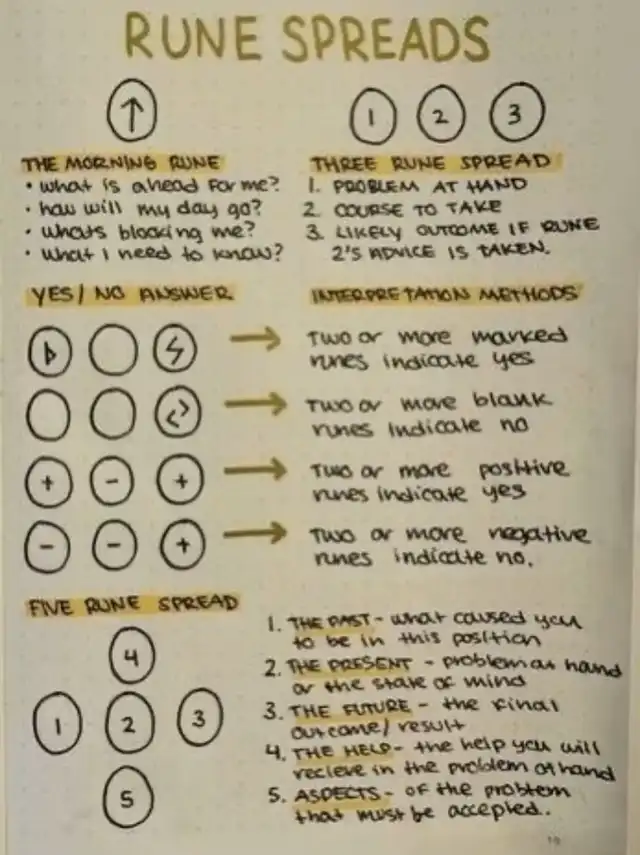 RUNE SPREADS
↑
1 2 3
THE MORNING RUNE
• what is ahead for me?
• how will my day go?
• whats blocking me?
• what I need to know?
THREE RUNE SPREAD
1. PROBLEM AT HAND
2. COURSE TO TAKE
3. LIKELY OUTCOME IF RUNE
2'S ADVICE IS TAKEN.
YES/ NO ANSWER
INTERPRETATION METHODS
→ TWO or more marked
runes indicate yes
→ TWO or more blank
runes indicate no
+ - + → TWO or more positive
runes indicate yes
- - + → TWO or more negative
runes indicate no.
FIVE RUNE SPREAD
4
1 2 3
5
1. THE PAST - what caused you
to be in this position
2. THE PRESENT - problem at hand
or the state of mind
3. THE FUTURE - the final
outcome/ result
4. THE HELP - the help you will
recieve in the problem at hand
5. ASPECTS - of the problem
that must be accepted.